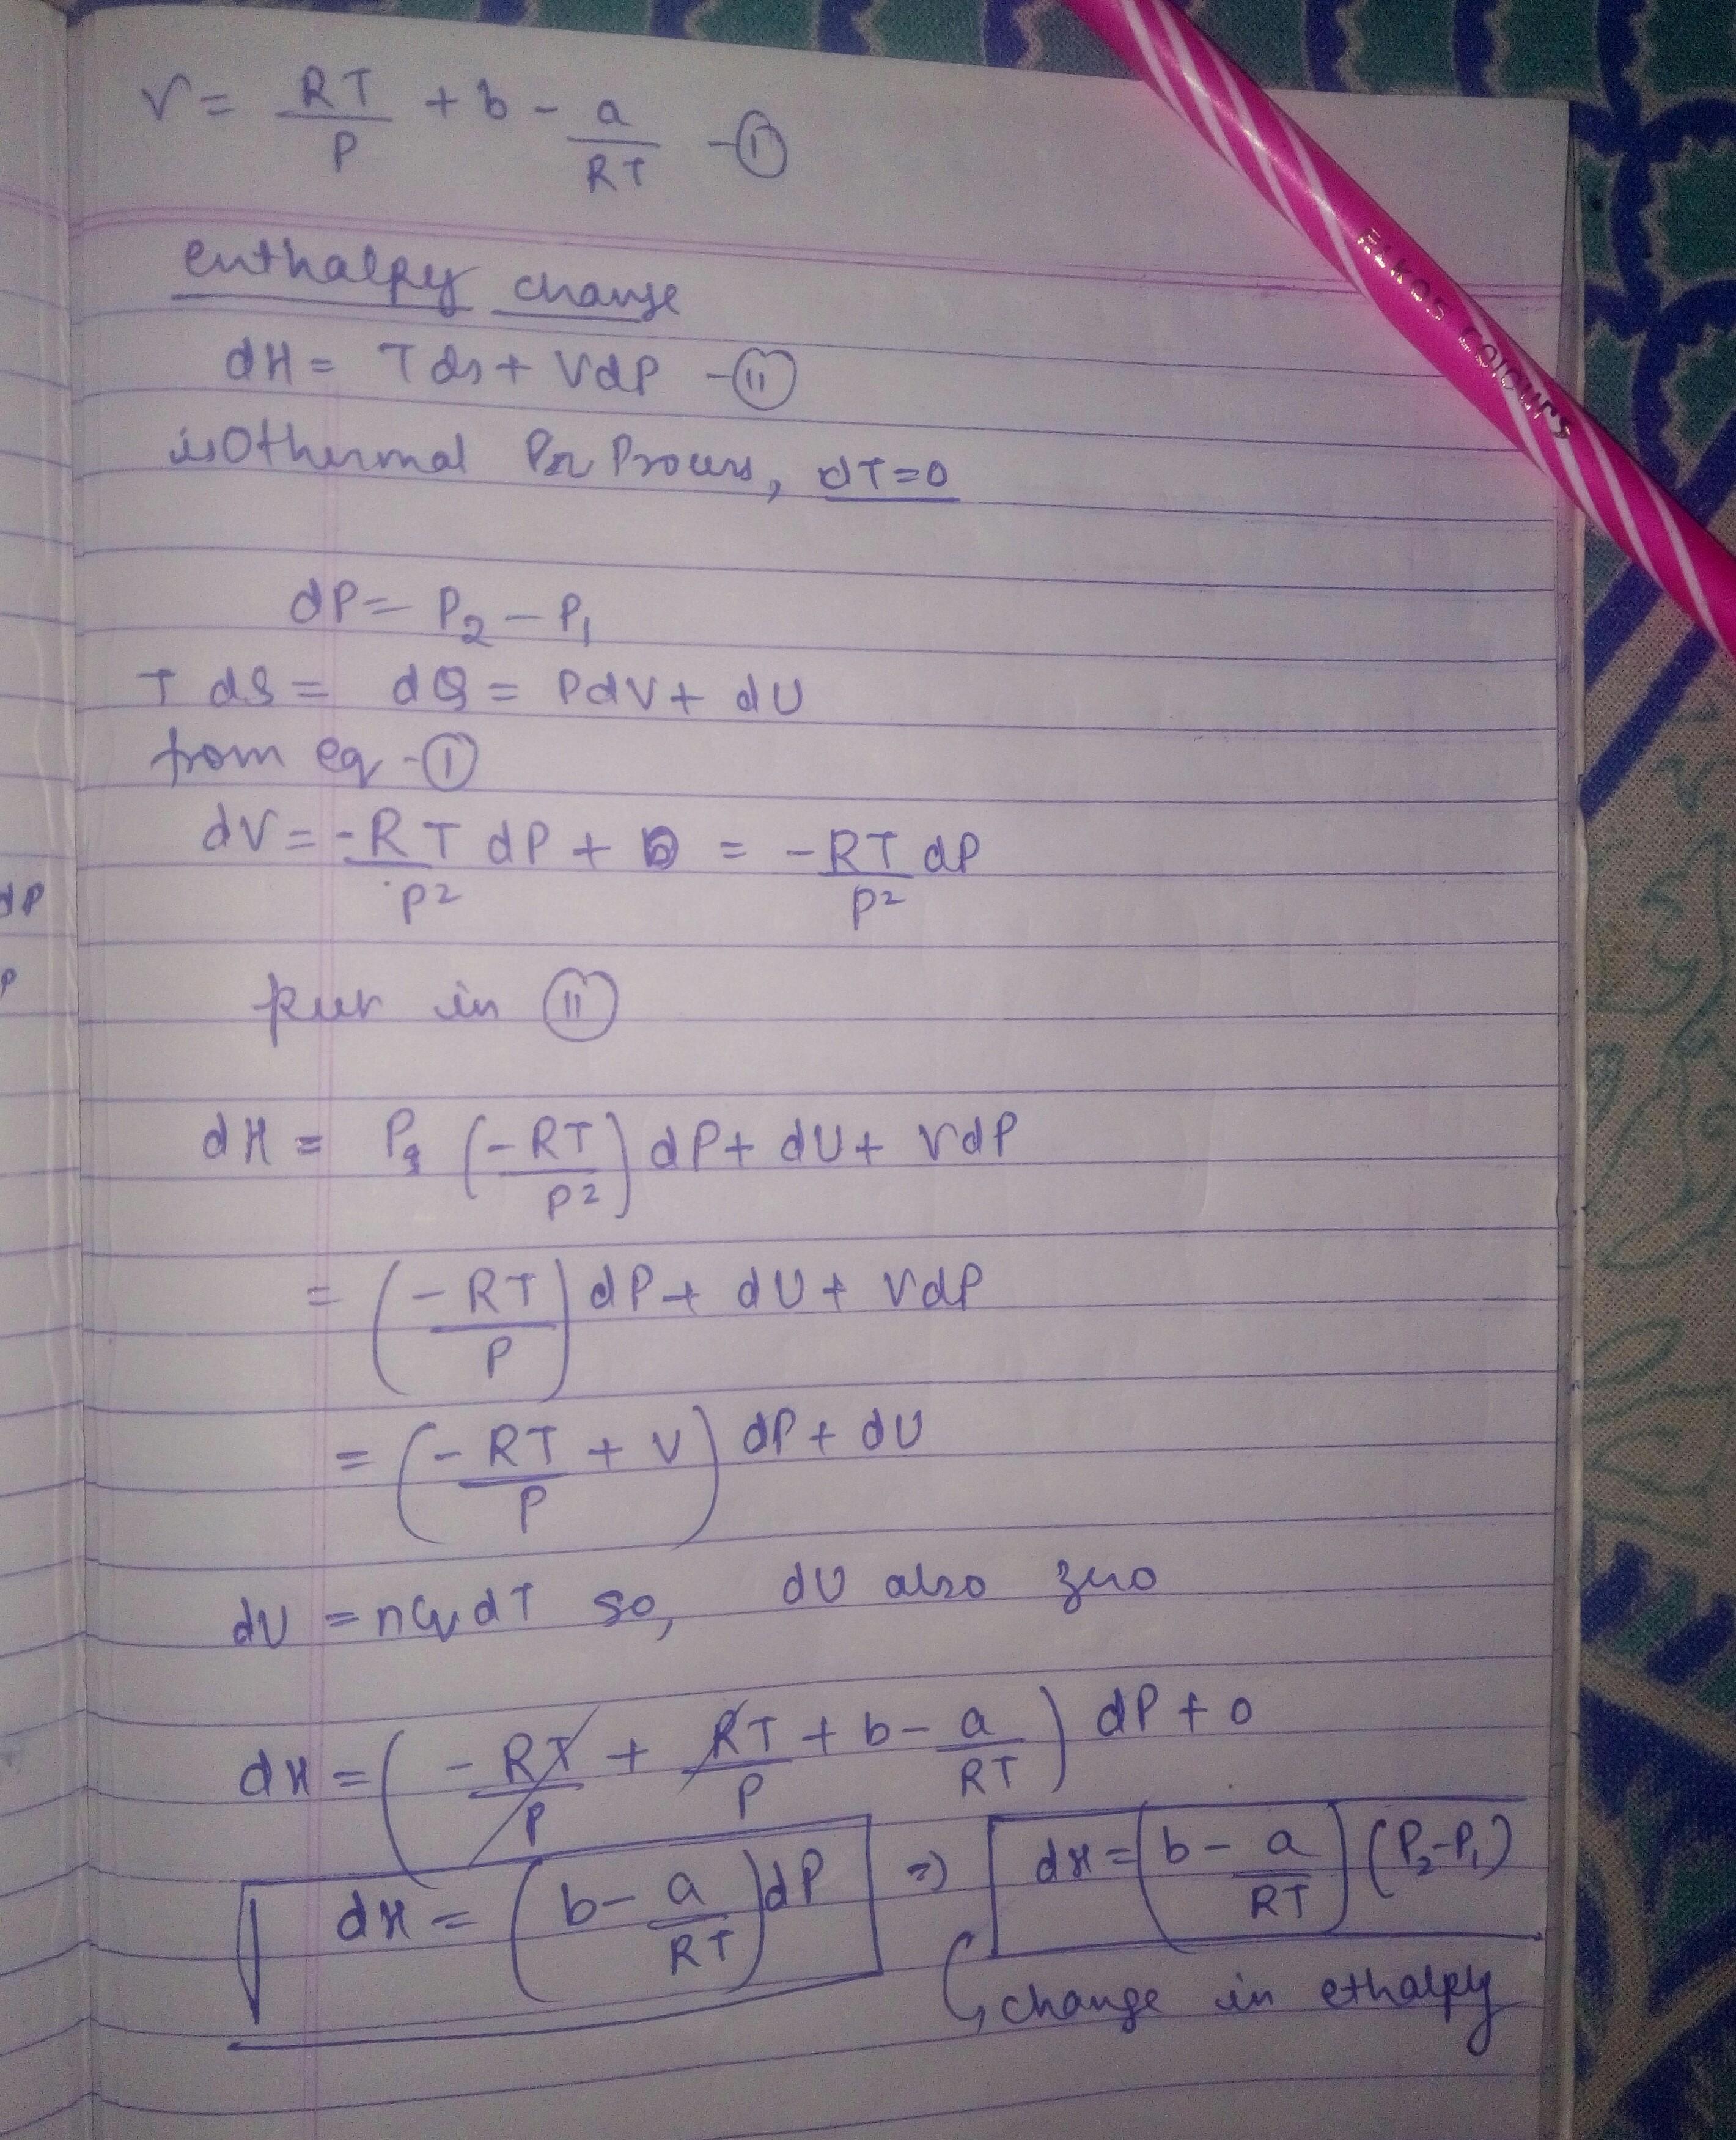 V = RT/P + b - a/RT - (I)
ELKOS COLOURS
enthalpy change
dH = Tds + VdP - (II)
isothermal Pr Process, dT=0
dP = P₂ - P₁
T dS = dQ = PdV + dU
from eq - (I)
dV = -RT/P² dP + 0 = -RT/P² dP
dP
P
put in (II)
dH = P (-RT/P²) dP + dU + VdP
= (-RT/P) dP + dU + VdP
= (-RT/P + V) dP + dU
dU = nCvdT so, dU also zero
dH = (-RT/P + RT/P + b - a/RT) dP + 0
dH = (b - a/RT) dP ⇒ dH = (b - a/RT) (P₂-P₁)
↳ change in ethalpy